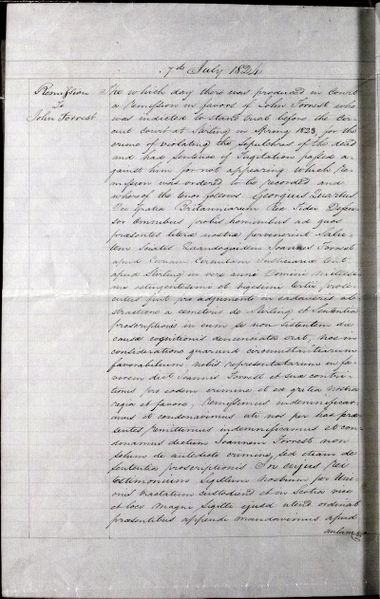 7th July 1824
Remission
To
John Forrest
The which day there was produced in Court
a Remission in favors of John Forrest who
was indicted to stand trial before the Cir-
cuit court at Stirling in Spring 1823 for the
crime of violating the Sepulchres of the dead
and had Sentence of Fugitation passed a-
gainst him for not appearing which Re-
mission was ordered to be recorded and
whereof the tenor follows Georgius Quartus
Dei Gratia Britanniarum Rex Fidei Defen-
sor omnibus probis hominibus ad quos
presentes literæ nostræ pervenerint Salu-
tem Sciatis Quandoquidem Joannes Forrest
apud Curiam Circuitam Justiciariæ tent
apud Stirling in vere anni Domini Millesi-
mo octingentesimo et vigesimo tertio prose-
cutus fuit pro adjumento in cadaveris ab-
stractione a cemeterio de Stirling et Sententia
proscriptionis in eum se non sistentem die
causæ cognitionis denunciata erat, nos in
considerationis quarund circumstantiarum
favorabilium nobis representatarum in fa-
vorem dict Joannis Forrest et suæ contri-
tionis pro eodem crimine et ex gratia nostra
regia et favore Remissimus indemnificavi-
mus et condonavimus uti nos per has præ-
sentes remittimus indemnificamus et con-
donamus dictum Joannem Forrest non
solum de antedicto crimine, sed etiam de
Sententia proscriptionis In cujus Rei
testimonium Sigillum nostrum per Uni-
onis tractatum custodiend et in Scotia vice
et loco Magni Sigilli ejusd utend ordinat
præsentibus appendi mandavimus apud
aulam